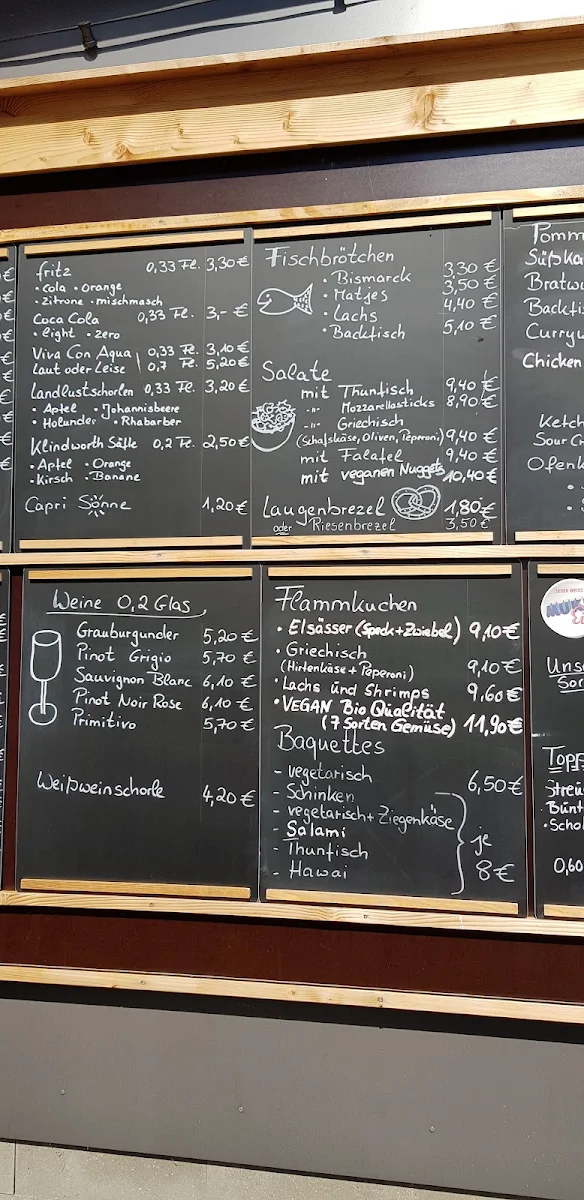 fritz 0,33 Fl. 3,30 €
• Cola • Orange
• Zitrone • mischmasch
Coca Cola 0,33 Fl. 3,- €
• light • zero
Viva Con Aqua 0,33 Fl. 3,10 €
Laut oder Leise 0,7 Fl. 5,20 €
Landlustschorlen 0,33 Fl. 3,20 €
• Apfel • Johannisbeere
• Holunder • Rhabarber
Klindworth Säfte 0,2 Fl. 2,50 €
• Apfel • Orange
• Kirsch • Banane
Capri Sonne 1,20 €
Fischbrötchen
• Bismarck 3,30 €
• Matjes 3,50 €
• Lachs 4,40 €
• Backfisch 5,10 €
Salate
mit Thunfisch 9,40 €
-"- Mozzarellasticks 8,90 €
-"- Griechisch
(Schafskäse, Oliven, Peperoni) 9,40 €
mit Falafel 9,40 €
mit veganen Nuggets 10,40 €
Laugenbrezel 1,80 €
oder Riesenbrezel 3,50 €
Weine 0,2 Glas
Grauburgunder 5,20 €
Pinot Grigio 5,70 €
Sauvignon Blanc 6,10 €
Pinot Noir Rose 6,10 €
Primitivo 5,70 €
Weißweinschorle 4,20 €
Flammkuchen
• Elsässer (Speck + Zwiebel) 9,10 €
• Griechisch
(Hirtenkäse + Peperoni) 9,10 €
• Lachs und Shrimps 9,60 €
• VEGAN Bio Qualität
(7 Sorten Gemüse) 11,90 €
Baguettes
- vegetarisch 6,50 €
- Schinken
- vegetarisch + Ziegenkäse
- Salami je
- Thunfisch 8 €
- Hawai
Pomm
Süßka
Bratwu
Backfis
Curryw
Chicken
Ketch
Sour C
Ofenk
Unse
Sor
Topp
Streu
Bunt
• Schok
0,60